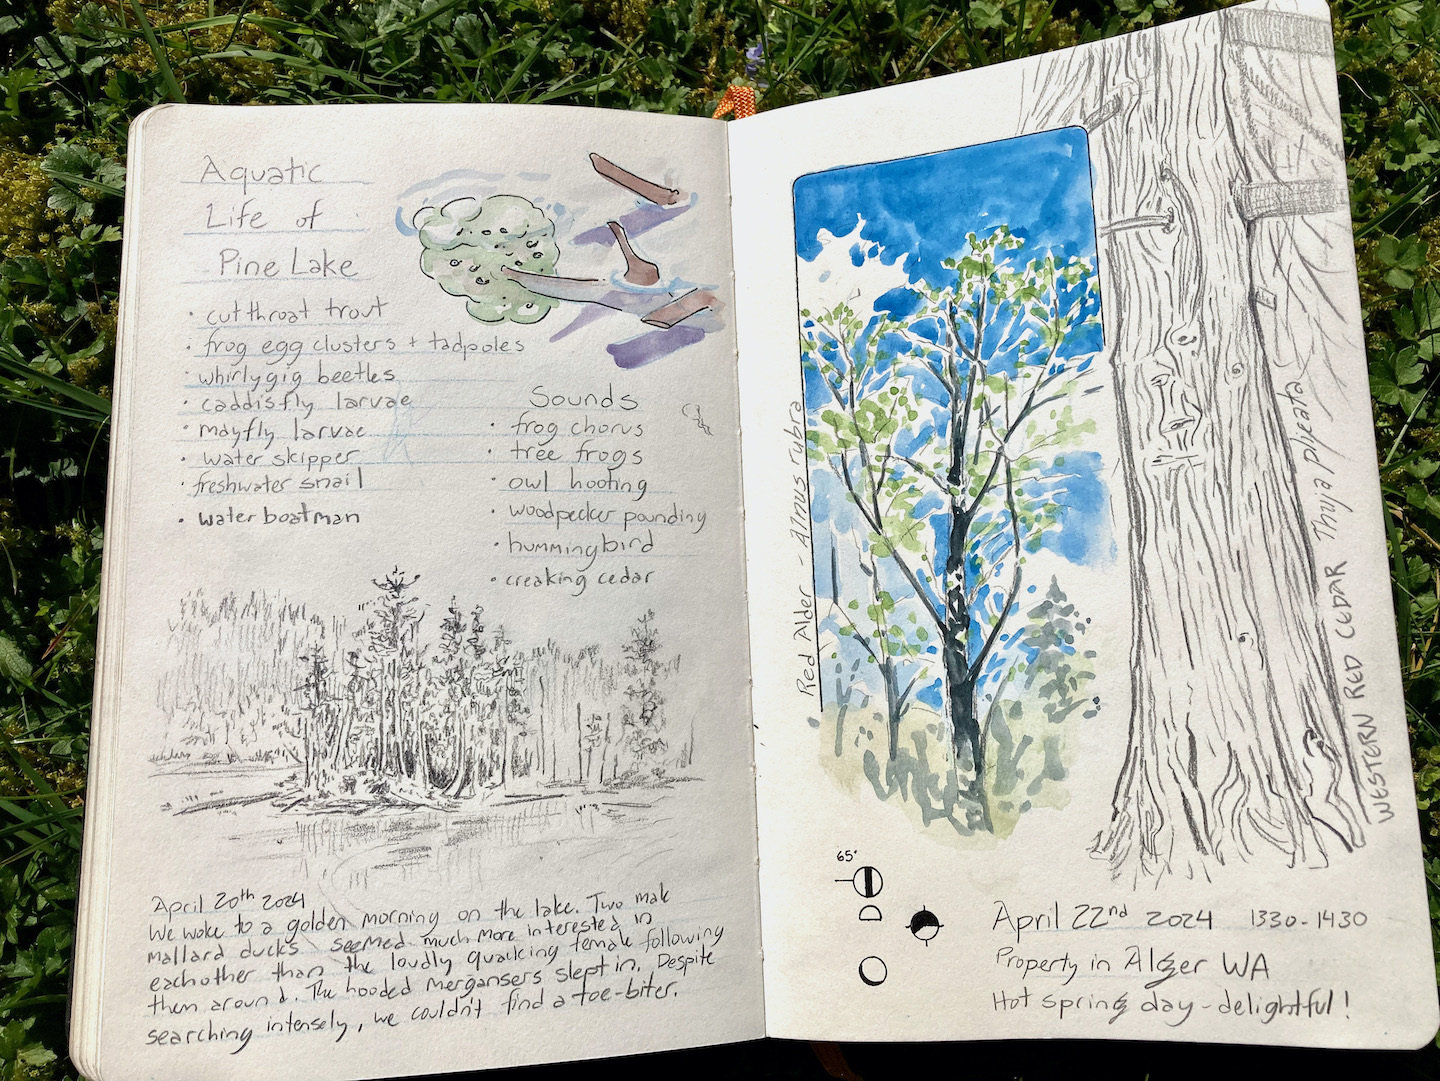 Aquatic
Life of
Pine Lake
• cutthroat trout
• frog egg clusters + tadpoles
• whirlygig beetles
• caddisfly larvae
• mayfly larvae
• water skipper
• freshwater snail
• water boatman
Sounds
• frog chorus
• tree frogs
• owl hooting
• woodpecker pounding
• hummingbird
• creaking cedar
April 20th 2024
We woke to a golden morning on the lake. Two male
mallard ducks seemed much more interested in
eachother than the loudly quacking female following
them around. The hooded mergansers slept in. Despite
searching intensely, we couldn't find a toe-biter.
Red Alder - Alnus rubra
WESTERN RED CEDAR Thuja plicata
65°
April 22nd 2024 1330-1430
Property in Alger WA
Hot spring day - delightful!